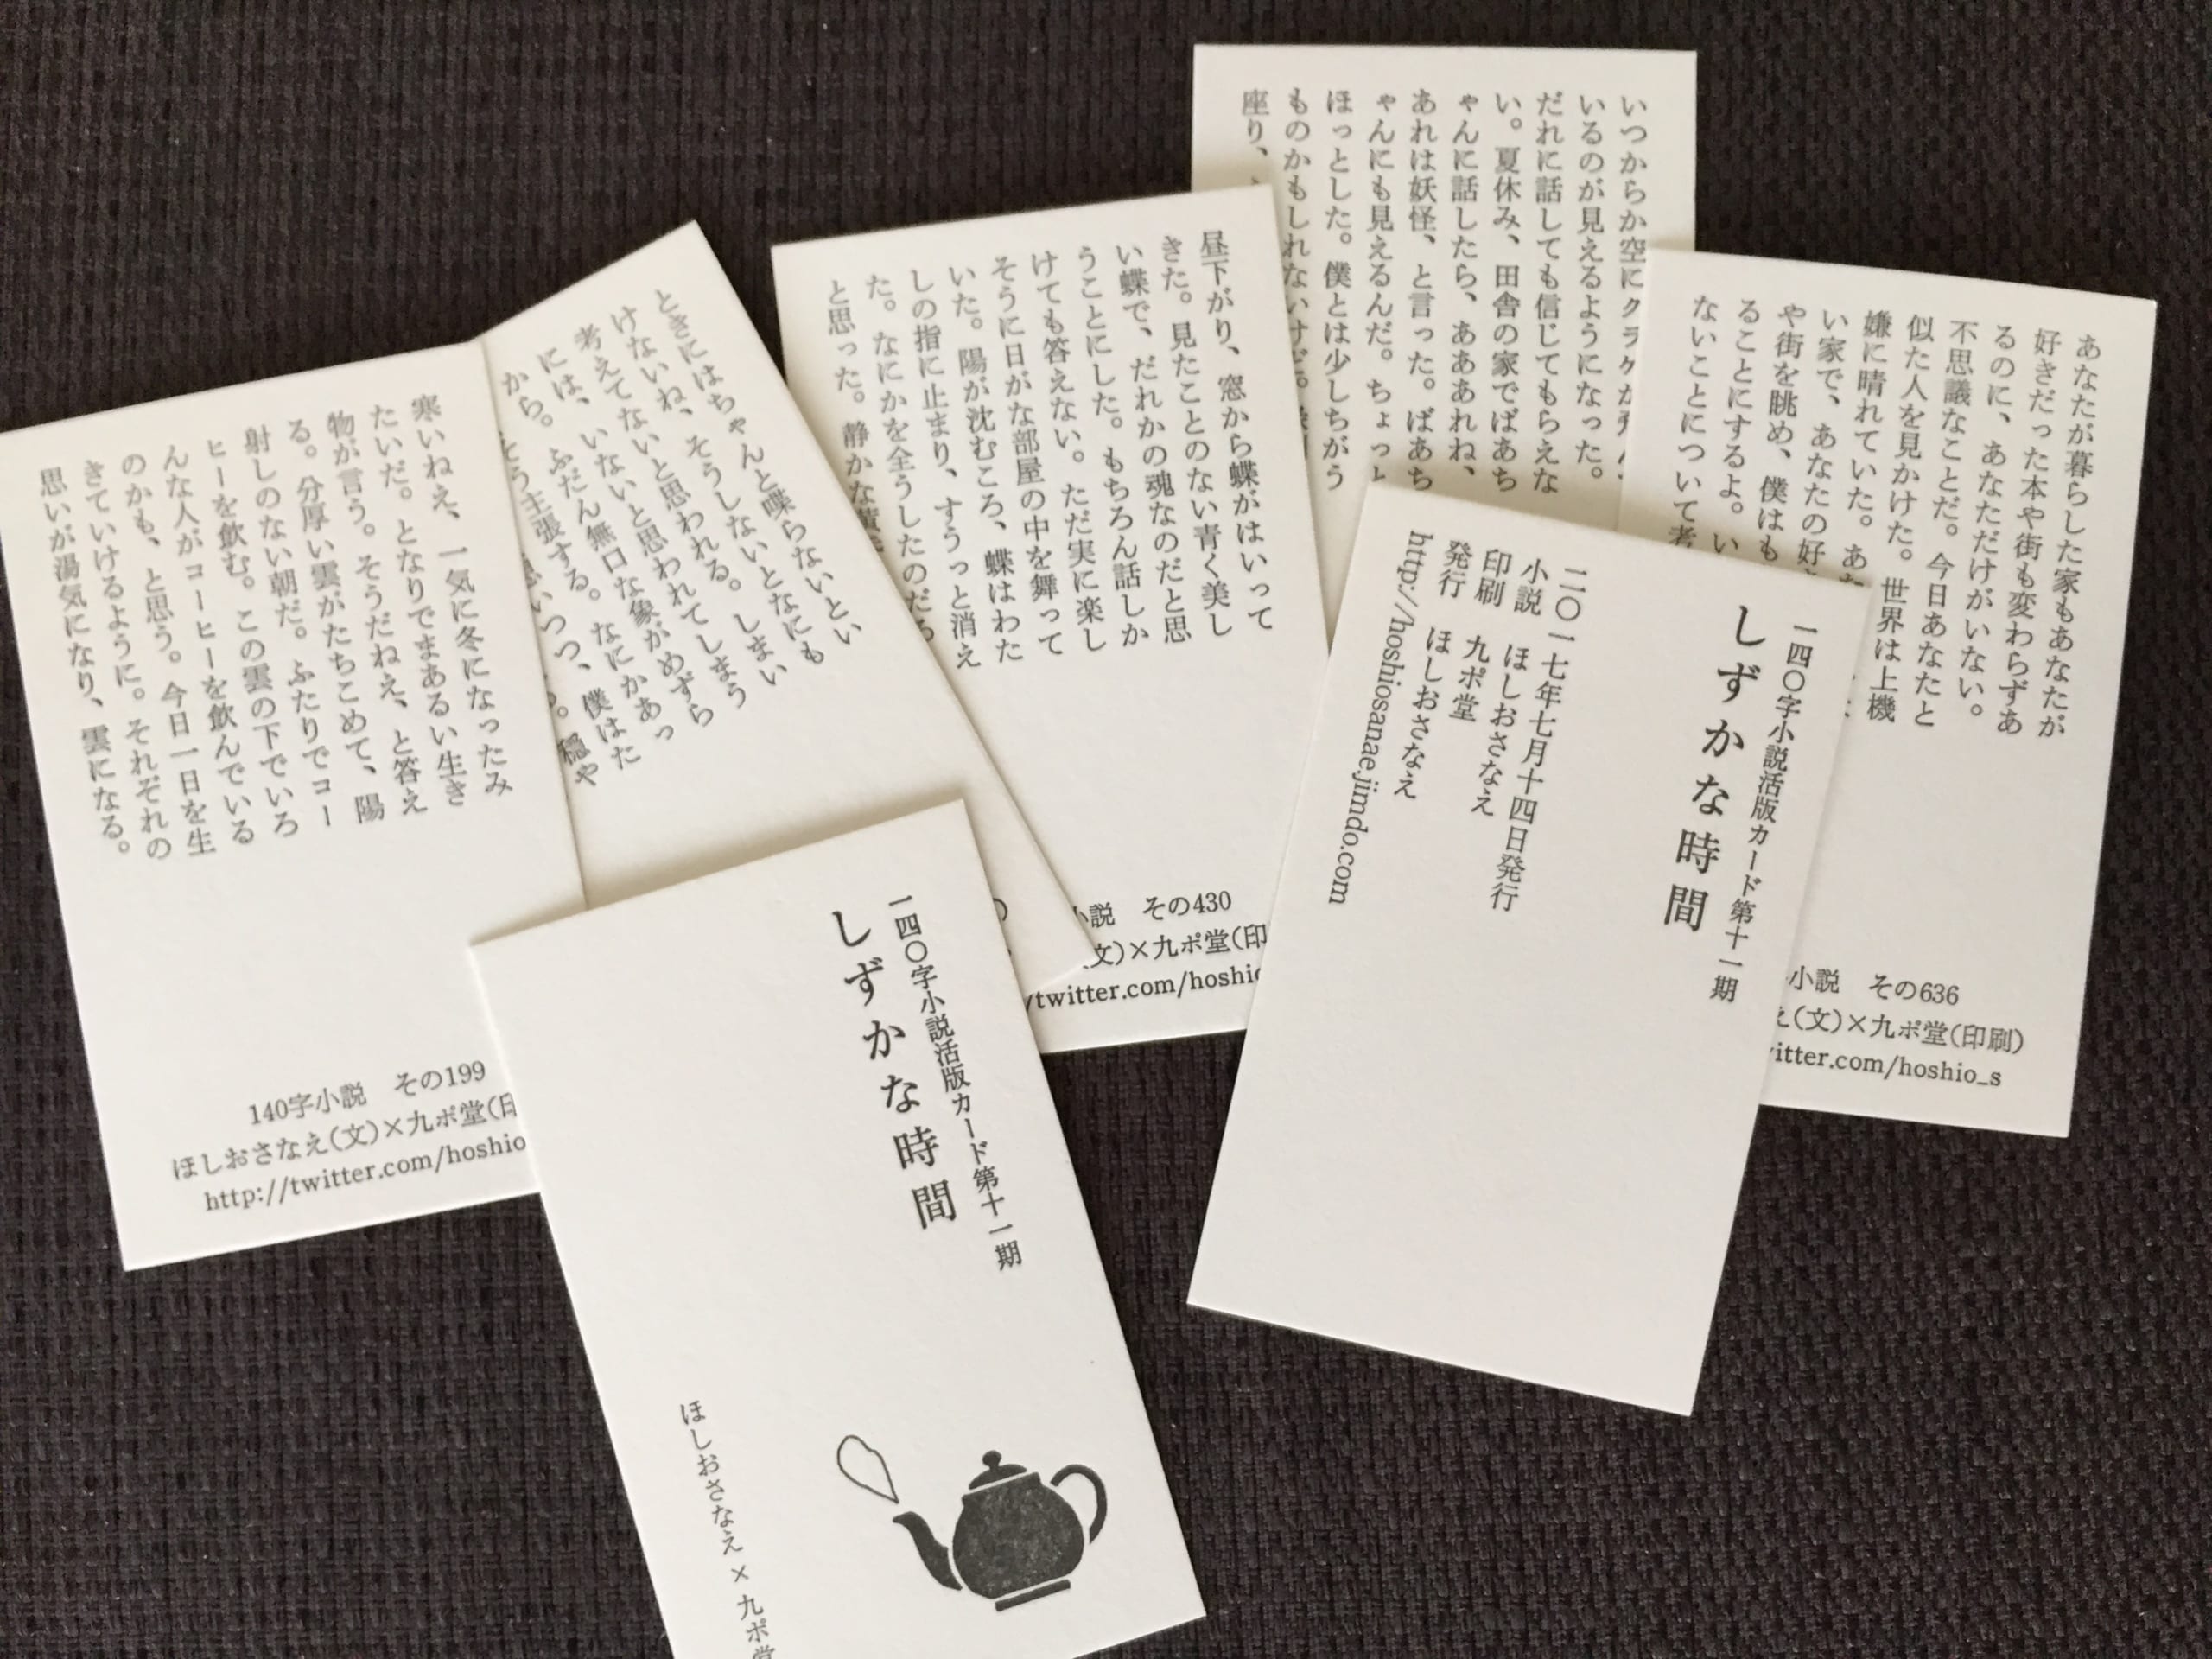 寒いねえ、一気に冬になったみ
たいだ。となりでまあるい生き
物が言う。そうだねえ、と答え
る。分厚い雲がたちこめて、陽
射しのない朝だ。ふたりでコー
ヒーを飲む。この雲の下でいろ
んな人がコーヒーを飲んでいる
のかも、と思う。今日一日を生
きていけるように。それぞれの
思いが湯気になり、雲になる。
140字小説 その199
ほしおさなえ(文)×九ポ堂(印
http://twitter.com/hoshio
ときにはちゃんと喋らないとい
けないね、そうしないとなにも
考えてないと思われる。しまい
には、いないと思われてしまう
から。ふだん無口な象がめずら
そう主張する。なにかあっ
思いつつ、僕はた
。穏や
昼下がり、窓から蝶がはいって
きた。見たことのない青く美し
い蝶で、だれかの魂なのだと思
うことにした。もちろん話しか
けても答えない。ただ実に楽し
そうに日がな部屋の中を舞って
いた。陽が沈むころ、蝶はわた
しの指に止まり、すうっと消え
た。なにかを全うしたのだろ
と思った。静かな黄
小説 その430
文)×九ポ堂(印
/twitter.com/hoshio
いつからか空にクラゲが飛ん
いるのが見えるようになった。
だれに話しても信じてもらえな
い。夏休み、田舎の家でばあち
ゃんに話したら、あああれね、
あれは妖怪、と言った。ばあち
ゃんにも見えるんだ。ちょっと
ほっとした。僕とは少しちがう
ものかもしれないけど。
座り、
あなたが暮らした家もあなたが
好きだった本や街も変わらずあ
るのに、あなただけがいない。
不思議なことだ。今日あなたと
似た人を見かけた。世界は上機
嫌に晴れていた。あな
い家で、あなたの好き
や街を眺め、僕はも
ることにするよ。い
ないことについて考
小説 その636
え(文)×九ポ堂(印刷)
witter.com/hoshio_s
一四〇字小説活版カード第十一期
しずかな時間
二〇一七年七月十四日発行
小説 ほしおさなえ
印刷 九ポ堂
発行 ほしおさなえ
http://hoshiosanae.jimdo.com
一四〇字小説活版カード第十一期
しずかな時間
ほしおさなえ×九ポ堂